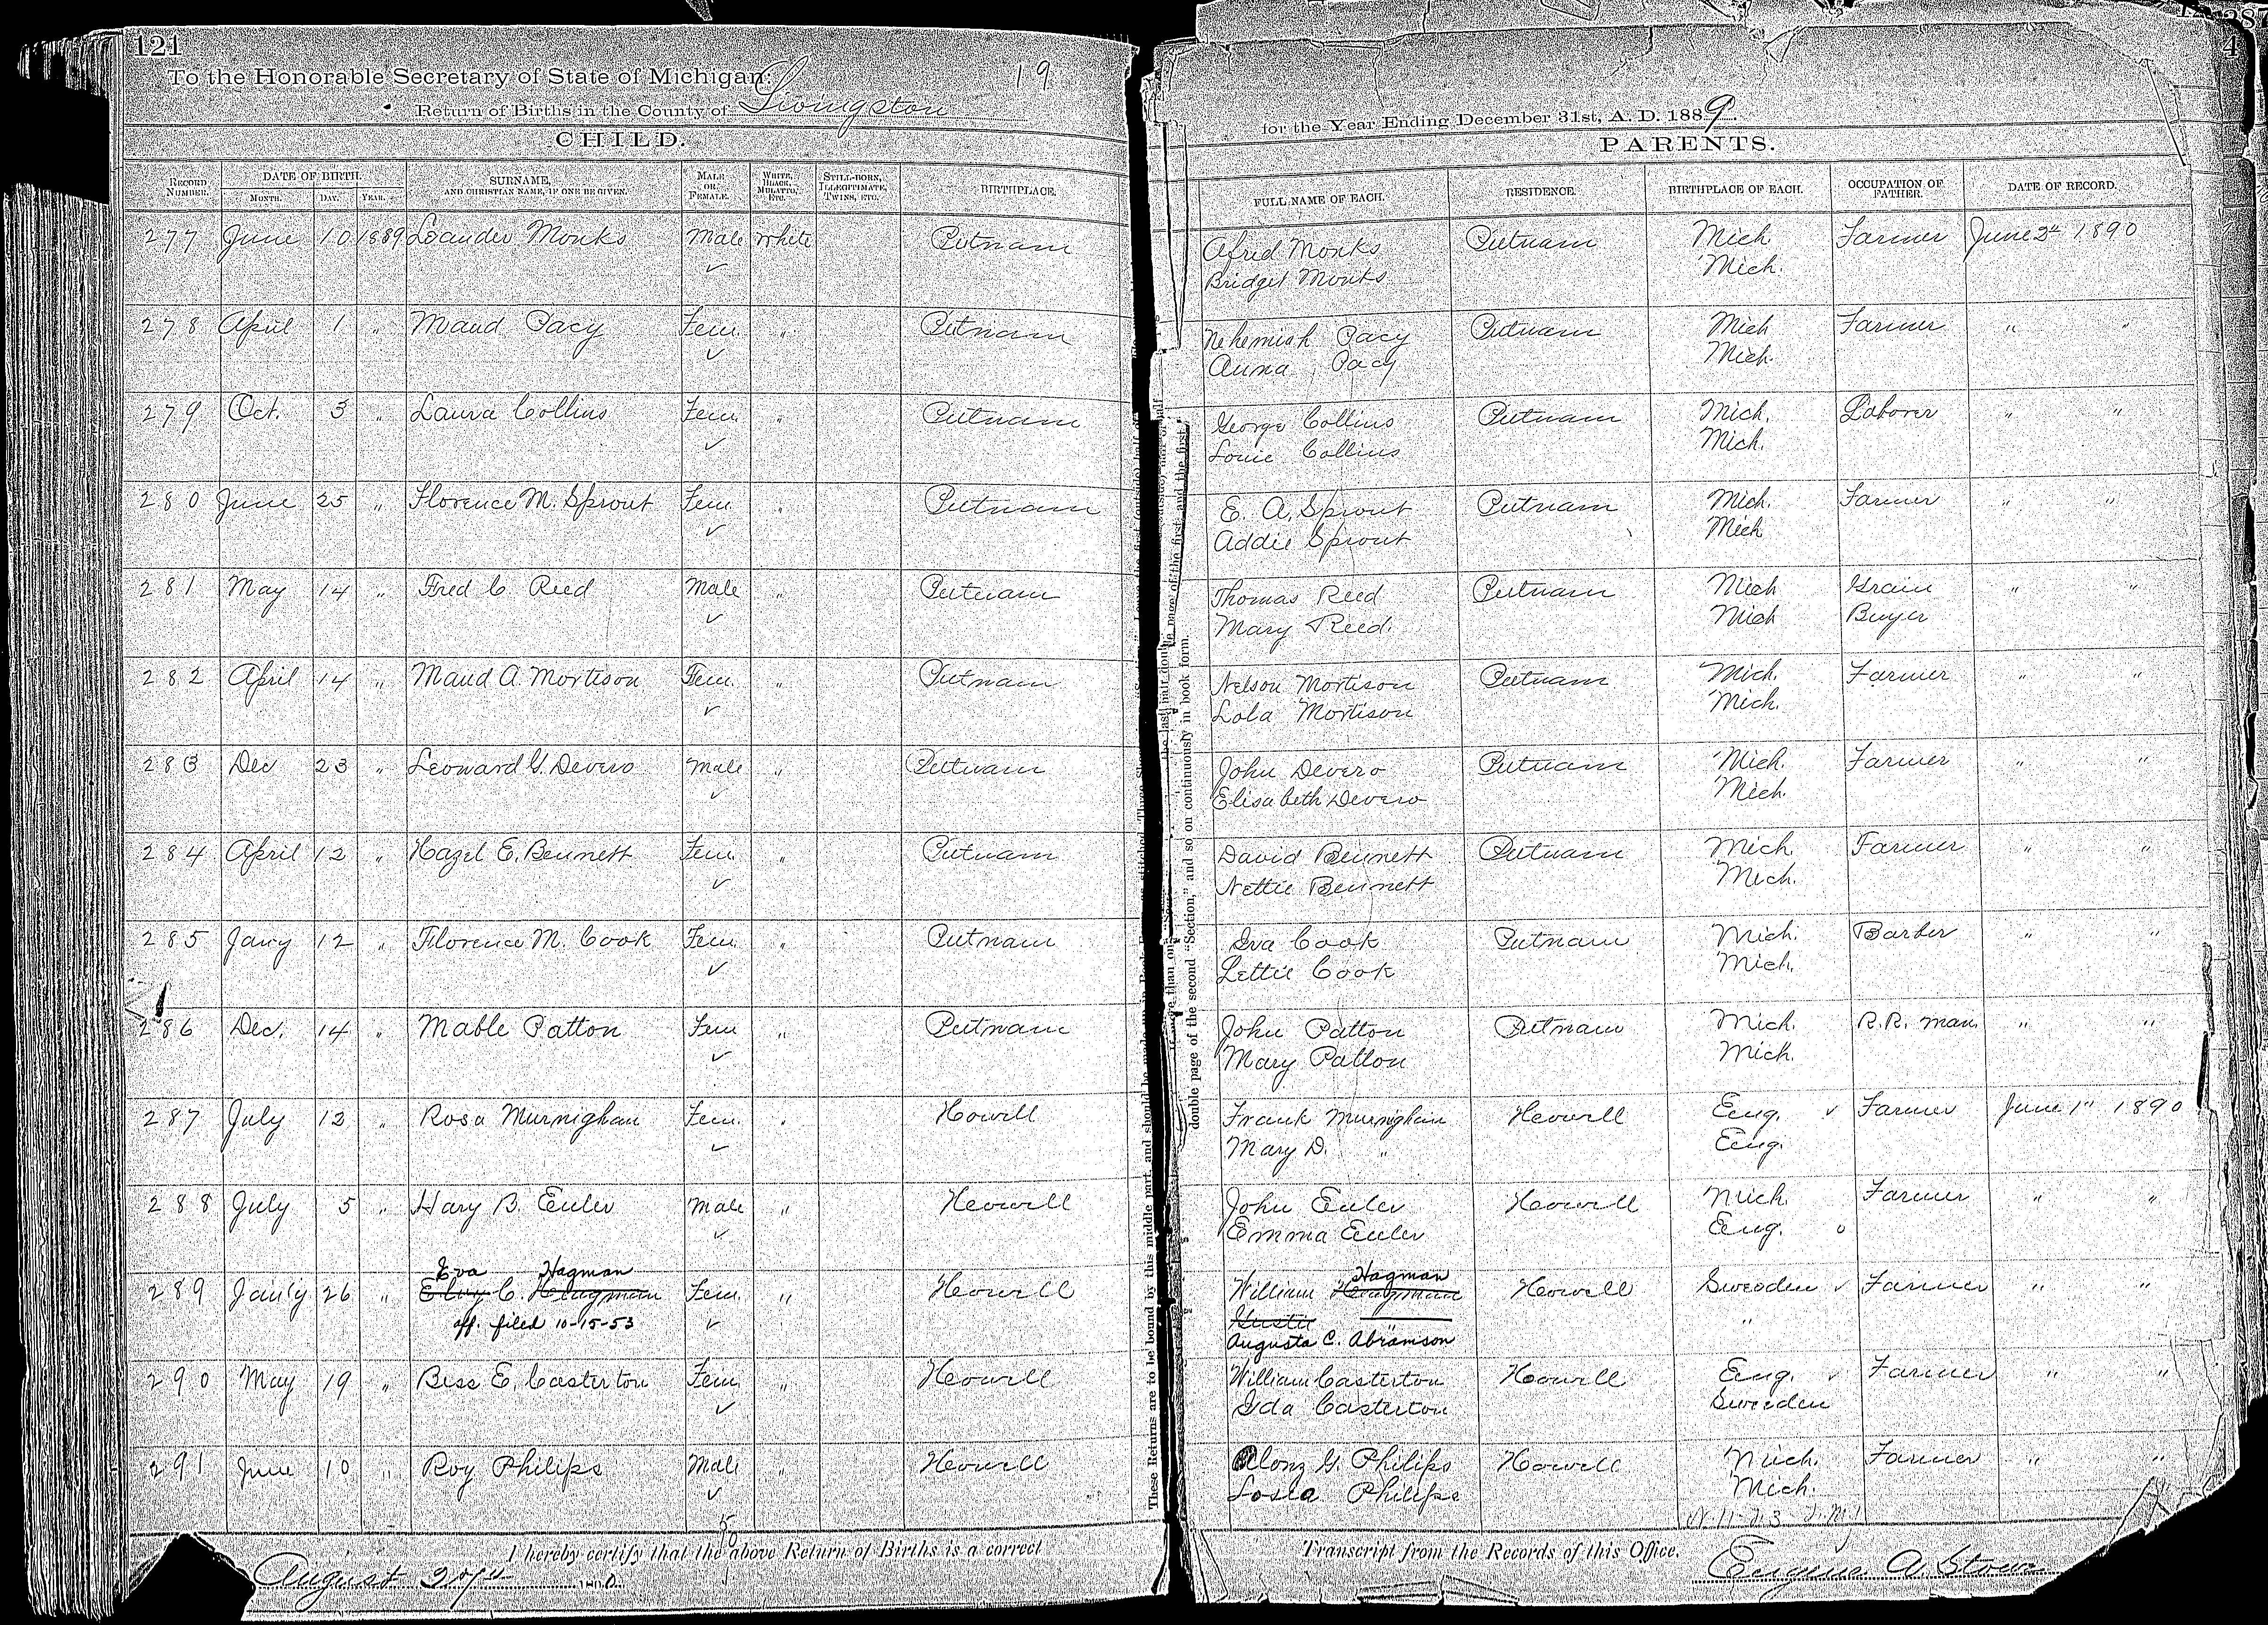 121
To the Honorable Secretary of State of Michigan: 19
Return of Births in the County of Livingston
for the Year Ending December 31st, A. D. 1889.
CHILD.
PARENTS.
RECORD NUMBER. DATE OF BIRTH. MONTH. DAY. YEAR. SURNAME, AND CHRISTIAN NAME, IF ONE BE GIVEN. MALE OR FEMALE. WHITE, BLACK, MULATTO, ETC. STILL-BORN, ILLEGITIMATE, TWINS, ETC. BIRTHPLACE. FULL NAME OF EACH. RESIDENCE. BIRTHPLACE OF EACH. OCCUPATION OF FATHER. DATE OF RECORD.
277 June 10 1889 Leander Monks Male White Putnam Alfred Monks Putnam Mich Farmer June 2nd 1890
Bridget Monks Mich.
278 April 1 " Maud Pacy Fem. " Putnam Nehemiah Pacy Putnam Mich Farmer " "
Anna Pacy Mich.
279 Oct. 3 " Laura Collins Fem. " Putnam George Collins Putnam Mich. Laborer " "
Louie Collins Mich.
280 June 25 " Florence M. Sprout Fem " Putnam E. A. Sprout Putnam Mich. Farmer " "
Addie Sprout Mich
281 May 14 " Fred C Reed Male " Putnam Thomas Reed Putnam Mich Grain " "
Mary Reed. Mich Buyer
282 April 14 " Maud A. Mortison Fem. " Putnam Nelson Mortison Putnam Mich. Farmer " "
Lola Mortison Mich.
283 Dec 23 " Leonard G. Devero Male " Putnam John Devero Putnam Mich. Farmer " "
Elisabeth Devero Mich.
284 April 12 " Hazel E. Bennett Fem. " Putnam David Bennett Putnam Mich Farmer " "
Nettie Bennett Mich.
285 Jany 12 " Florence M. Cook Fem. " Putnam Iva Cook Putnam Mich. Barber " "
Lettie Cook Mich.
286 Dec. 14 " Mable Patton Fem " Putnam John Patton Putnam Mich. R.R. man " "
Mary Patton Mich.
287 July 13 " Rosa Murnighan Fem. " Howell Frank Murnighan Howell Eng. Farmer June 1" 1890
Mary D. " Eng.
288 July 5 " Hary B. Euler Male " Howell John Euler Howell Mich Farmer " "
Emma Euler Eng.
Eva Hagman Hagman
289 Jan'y 26 " C. Fem. " Howell William Howell Sweeden Farmer " "
aff. filed 10-15-53 "
Augusta C. Abramson
290 May 19 " Bess E. Casterton Fem. " Howell William Casterton Howell Eng. Farmer " "
Ida Casterton Sweeden
291 June 10 " Roy Philips Male " Howell Alonz G. Philips Howell Mich. Farmer " "
Philips Mich.
I hereby certify that the above Return of Births is a correct Transcript from the Records of this Office.
August Eugene A. Stowe
These Returns are to be bound by this middle part, and should be
double page of the second "Section," and so on continuously in book form.